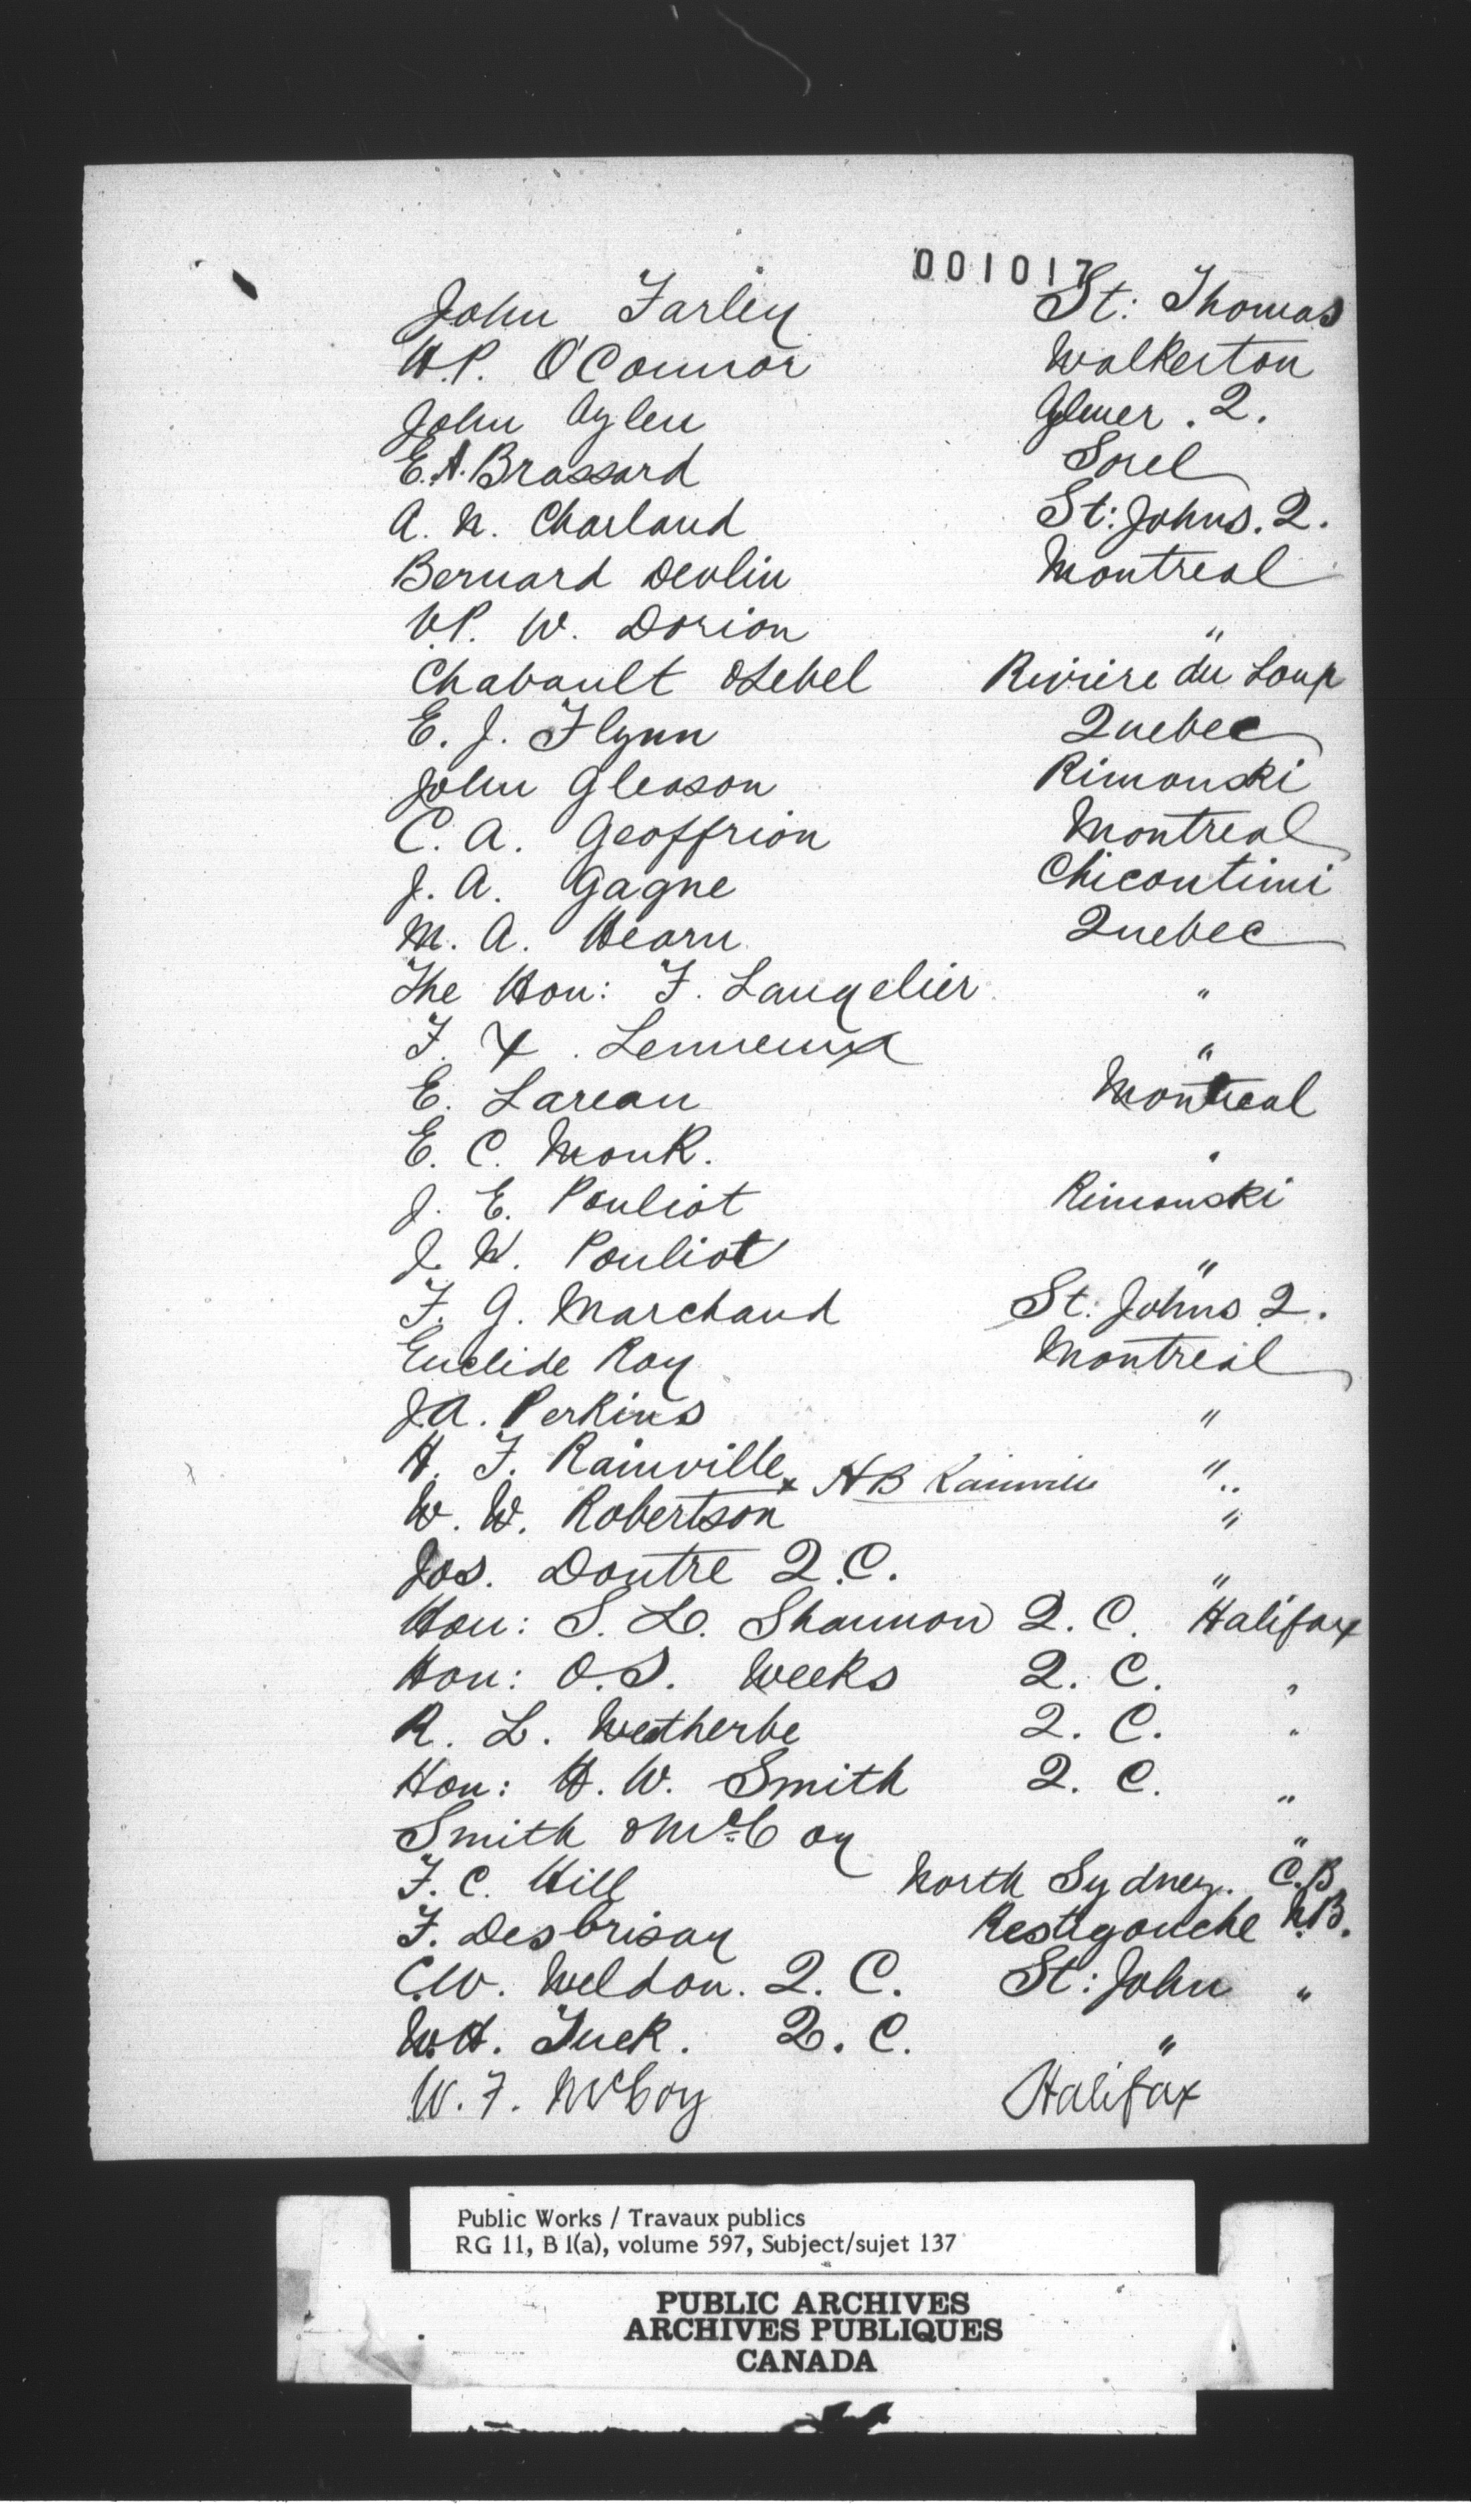 001017
John Farley St: Thomas
H.P. O'Connor Walkerton
John Aylen Aylmer. Q.
E.A. Brassard Sorel
A. N. Charland St: Johns. Q.
Bernard Devlin Montreal
V.P. W. Dorion "
Chabault & Lebel Riviere du Loup
E. J. Flynn Quebec
John Gleason Rimouski
C. A. Geoffrion Montreal
J. A. Gagne Chicoutimi
M. A. Hearn Quebec
The Hon: F. Langelier "
F. X. Lemieux "
E. Lareau Montreal
E. C. Monk. "
J. E. Pouliot Rimouski
J. N. Pouliot "
F. G. Marchand St. Johns Q.
Euclide Roy Montreal
J.A. Perkins "
H. F. Rainville x HB Rainville "
W. W. Robertson "
Jos. Doutre Q.C. "
Hon: S. L. Shannon Q. C. Halifax
Hon: O.S. Weeks Q. C. "
R. L. Weatherbe Q. C. "
Hon: H. W. Smith Q. C. "
Smith & McCoy "
F. C. Hill North Sydney. C.B
F. Desbrisay Restigouche N.B.
C.W. Weldon. Q. C. St: John "
W.H. Tuck. Q. C. "
W. F. McCoy Halifax
Public Works / Travaux publics
RG 11, B 1(a), volume 597, Subject/sujet 137
PUBLIC ARCHIVES
ARCHIVES PUBLIQUES
CANADA